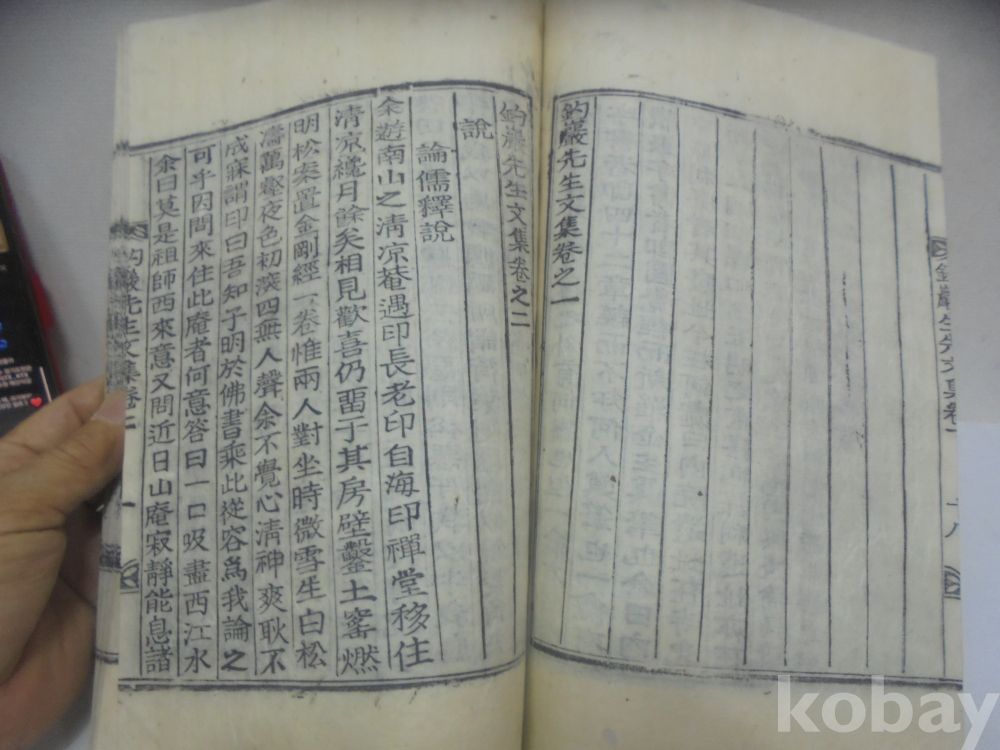 釣巖先生文集卷之一
釣巖先生文集卷之二
說
論儒釋說
余遊南山之清凉菴遇印長老印自海印禪堂移住
清凉纔月餘矣相見歡喜仍留于其房壁鑿土窰燃
明松案置金剛經一卷惟兩人對坐時微雪生白松
濤萬壑夜色初深四無人聲余不覺心清神爽耿不
成寐謂印曰吾知子明於佛書乘此從容爲我論之
可乎因問來住此庵者何意答曰一口吸盡西江水
余曰莫是祖師西來意又問近日山庵寂靜能息諸
先生文集卷二
一
十八
kobay